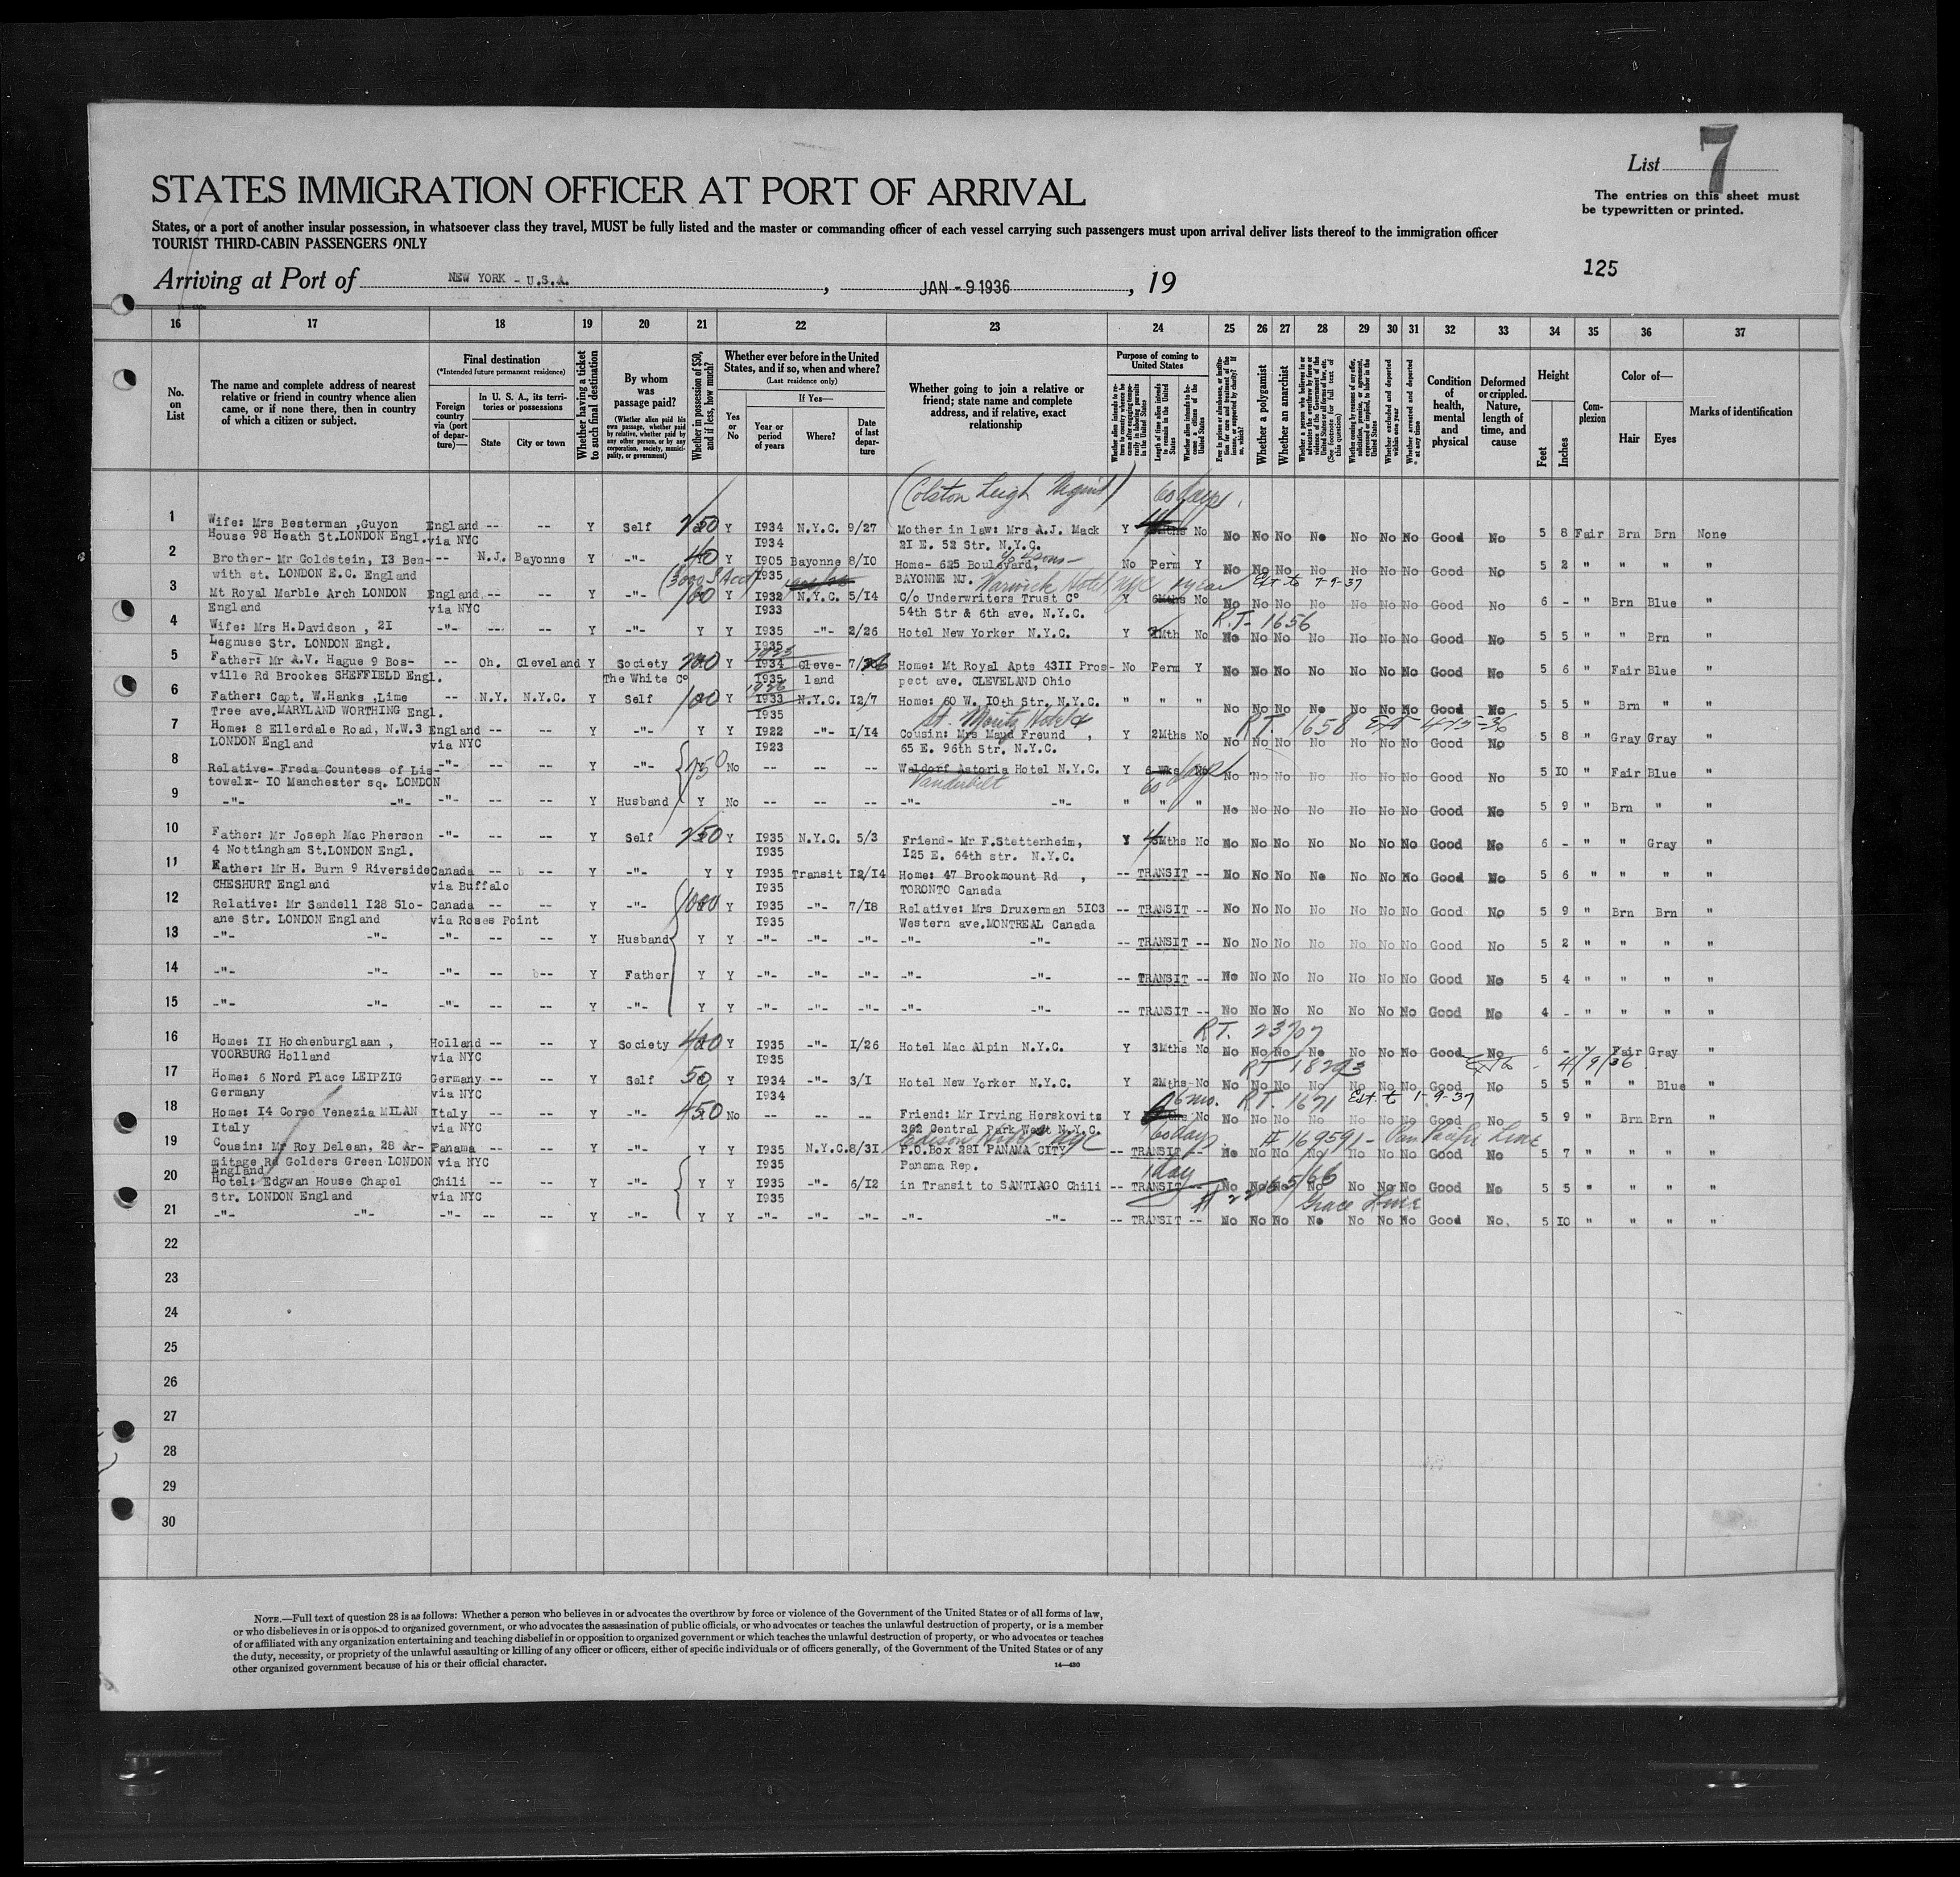 List 7
The entries on this sheet must
be typewritten or printed.
STATES IMMIGRATION OFFICER AT PORT OF ARRIVAL
States, or a port of another insular possession, in whatsoever class they travel, MUST be fully listed and the master or commanding officer of each vessel carrying such passengers must upon arrival deliver lists thereof to the immigration officer
TOURIST THIRD-CABIN PASSENGERS ONLY
125
Arriving at Port of NEW YORK - U.S.A. , JAN - 9 1936 , 19
16 17 18 19 20 21 22 23 24 25 26 27 28 29 30 31 32 33 34 35 36 37
No. on List
The name and complete address of nearest relative or friend in country whence alien came, or if none there, then in country of which a citizen or subject.
Final destination
(*Intended future permanent residence)
Foreign country via (port of departure)—
In U. S. A., its territories or possessions
State City or town
Whether having a ticket to such final destination
By whom was passage paid?
(Whether alien paid his own passage, whether paid by relative, whether paid by any other person, or by any corporation, society, municipality, or government)
Whether in possession of $50, and if less, how much?
Whether ever before in the United States, and if so, when and where?
(Last residence only)
Yes or No
If Yes—
Year or period of years Where? Date of last departure
Whether going to join a relative or friend; state name and complete address, and if relative, exact relationship
Purpose of coming to United States
Length of time alien intends to remain in the United States
Whether alien intends to become a citizen of the United States
Whether a polygamist
Whether an anarchist
Condition of health, mental and physical
Deformed or crippled. Nature, length of time, and cause
Height
Feet Inches
Complexion
Color of—
Hair Eyes
Marks of identification
(Colston Leigh 60 days
1 Wife: Mrs Besterman ,Guyon England -- -- Y Self 250 Y I934 N.Y.C. 9/27 Mother in law: Mrs A.J. Mack Y No No No No No No No No Good No 5 8 Fair Brn Brn None
House 98 Heath St.LONDON Engl. via NYC I934 2I E. 52 Str. N.Y.C.
2 Brother- Mr Goldstein, I3 Ben- -- N.J. Bayonne Y -"- 40 Y I905 Bayonne 8/IO Home- 625 Boulevard, No Perm Y No No No No No No No Good No 5 2 " " " "
with st. LONDON E.C. England I935 BAYONNE NJ. Warwick Hotel NYC 1 year Ext to 7-9-37
3 Mt Royal Marble Arch LONDON England -- -- Y -"- 100 Y I932 N.Y.C. 5/I4 C/o Underwriters Trust C° Y 6Mths No No No No No No No No Good No 6 - " Brn Blue "
England via NYC I933 54th Str & 6th ave. N.Y.C. R.T- 1656
4 Wife: Mrs H.Davidson , 2I -"- -- -- Y -"- Y Y I935 -"- 2/26 Hotel New Yorker N.Y.C. Y Mth No No No No No No No No Good No 5 5 " " Brn "
Legnuse Str. LONDON Engl. I935
5 Father: Mr A.V. Hague 9 Bos- -- Oh. Cleveland Y Society 200 Y 1935 I934 Cleve- 7/ Home: Mt Royal Apts 43II Pros- No Perm Y No No No No No No No Good No 5 6 " Fair Blue "
ville Rd Brookes SHEFFIELD Engl. The White C° I935 land pect ave. CLEVELAND Ohio
6 Father: Capt. W.Hanks ,Lime -- N.Y. N.Y.C. Y Self 100 Y I933 N.Y.C. I2/7 Home: 60 W. IOth Str. N.Y.C. " " " No No No No No No No Good No 5 5 " Brn " "
Tree ave.MARYLAND WORTHING Engl. I935 St. Moritz Hotel R.T. 1658
7 Home: 8 Ellerdale Road, N.W.3 England -- -- Y -"- Y Y I922 -"- I/I4 Cousin: Mrs Maud Freund , Y 2Mths No No No No No No No No Good No 5 8 " Gray Gray "
LONDON England via NYC I923 65 E. 96th Str. N.Y.C.
8 Relative- Freda Countess of Lis- -"- -- -- Y -"- 750 No -- -- -- Waldorf Astoria Hotel N.Y.C. Y 6 Wks No No No No No No No No Good No 5 IO " Fair Blue "
towelx- IO Manchester sq. LONDON Vanderbilt 60 days
9 -"- -"- -"- -- -- Y Husband Y No -- -- -- -"- -"- " " " No No No No No No No Good No 5 9 " Brn " "
10 Father: Mr Joseph Mac Pherson -"- -- -- Y Self 250 Y I935 N.Y.C. 5/3 Friend- Mr F.Stettenheim, Y 4Mths No No No No No No No No Good No 6 - " " Gray "
4 Nottingham St.LONDON Engl. I935 I25 E. 64th str. N.Y.C.
11 Father: Mr H. Burn 9 Riverside Canada -- -- Y -"- Y Y I935 Transit I2/I4 Home: 47 Brookmount Rd , -- TRANSIT -- No No No No No No No Good No 5 6 " " " "
CHESHURT England via Buffalo I935 TORONTO Canada
12 Relative: Mr Sandell I28 Slo- Canada -- -- Y -"- 1000 Y I935 -"- 7/I8 Relative: Mrs Druxerman 5I03 -- TRANSIT -- No No No No No No No Good No 5 9 " Brn Brn "
ane Str. LONDON England via Roses Point I935 Western ave.MONTREAL Canada
13 -"- -"- -"- -- -- Y Husband Y Y -"- -"- -"- -"- -"- -- TRANSIT -- No No No No No No No Good No 5 2 " " " "
14 -"- -"- -"- -- -- Y Father Y Y -"- -"- -"- -"- -"- -- TRANSIT -- No No No No No No No Good No 5 4 " " " "
15 -"- -"- -"- -- -- Y -"- Y Y -"- -"- -"- -"- -"- -- TRANSIT -- No No No No No No No Good No 4 - " " " "
R.T. 23707
16 Home: II Hochenburglaan , Holland -- -- Y Society 400 Y I935 -"- I/26 Hotel Mac Alpin N.Y.C. Y 3Mths No No No No No No No No Good No 6 - " Fair Gray "
VOORBURG Holland via NYC I935 4/9/36
17 Home: 6 Nord Place LEIPZIG Germany -- -- Y Self 50 Y I934 -"- 3/I Hotel New Yorker N.Y.C. Y 2Mths No No No No No No No No Good No 5 5 " " Blue "
Germany via NYC I934 6 mo. R.T. 1671 Ext. to 1-9-37
18 Home: I4 Corso Venezia MILAN Italy -- -- Y -"- 450 No -- -- -- Friend: Mr Irving Horskovits Y No No No No No No No No Good No 5 9 " Brn Brn "
Italy via NYC 262 Central Park West N.Y.C.
Edison Hotel NYC 60 days # 169591 - Pan Pacific Line
19 Cousin: Mr Roy Delean, 28 Ar- Panama -- -- Y -"- Y Y I935 N.Y.C. 8/3I P.O.Box 28I PANAMA CITY -- TRANSIT -- No No No No No No No Good No 5 7 " " " "
mitage Rd Golders Green LONDON via NYC I935 Panama Rep.
England 1 day
20 Hotel: Edgwan House Chapel Chili -- -- Y Y Y I935 -"- 6/I2 in Transit to SANTIAGO Chili -- TRANSIT -- No No No No No No No Good No 5 5 " " " "
Str. LONDON England via NYC I935 Grace Line
21 -"- -"- -"- -- -- Y Y Y -"- -"- -"- -"- -"- -- TRANSIT -- No No No No No No No Good No. 5 IO " " " "
22
23
24
25
26
27
28
29
30
NOTE.—Full text of question 28 is as follows: Whether a person who believes in or advocates the overthrow by force or violence of the Government of the United States or of all forms of law,
or who disbelieves in or is opposed to organized government, or who advocates the assassination of public officials, or who advocates or teaches the unlawful destruction of property, or is a member
of or affiliated with any organization entertaining and teaching disbelief in or opposition to organized government or which teaches the unlawful destruction of property, or who advocates or teaches
the duty, necessity, or propriety of the unlawful assaulting or killing of any officer or officers, either of specific individuals or of officers generally, of the Government of the United States or of any
other organized government because of his or their official character.
14—430